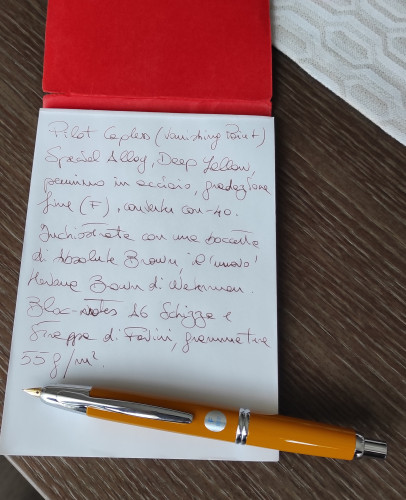 Pilot Capless (Vanishing Point)
Special Alloy, Deep Yellow,
pennino in acciaio, gradazione
fine (F), converter con-40.
Inchiostrata con una boccetta
di Absolute Brown, il "nuovo"
Havana Brown di Waterman.
Bloc-notes A6 Schizza e
Strappa di Favini, grammatura
55 g/m².